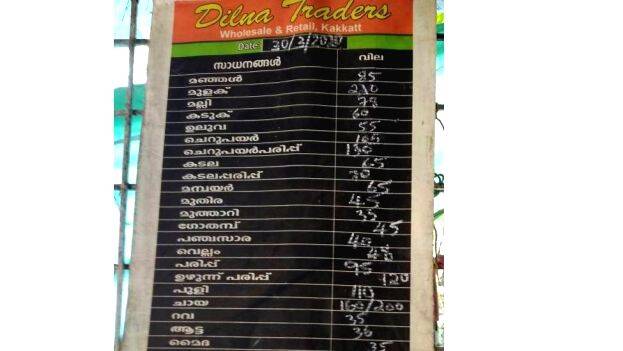 Dilna Traders
Wholesale & Retail, Kakkatt
Date: 30/3/2020
സാധനങ്ങൾ വില
മഞ്ഞൾ 85
മുളക് 210
മല്ലി 78
കടുക് 60
ഉലുവ 55
ചെറുപയർ
ചെറുപയർപരിപ്പ് 130
കടല 65
കടലപ്പരിപ്പ് 70
മമ്പയർ 65
മുതിര 45
മുത്താറി 35
ഗോതമ്പ് 45
പഞ്ചസാര 40
വെല്ലം
പരിപ്പ് 95
ഉഴുന്ന് പരിപ്പ് 120
പുളി 110
ചായ 160/200
റവ 35
ആട്ട 36
മൈദ 35